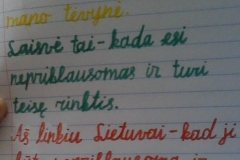 mano tėvynė.
Laisvė tai - kada esi
nepriklausomas ir turi
teisę rinktis.
Aš linkiu Lietuvai - kad ji
nepriklausoma ir